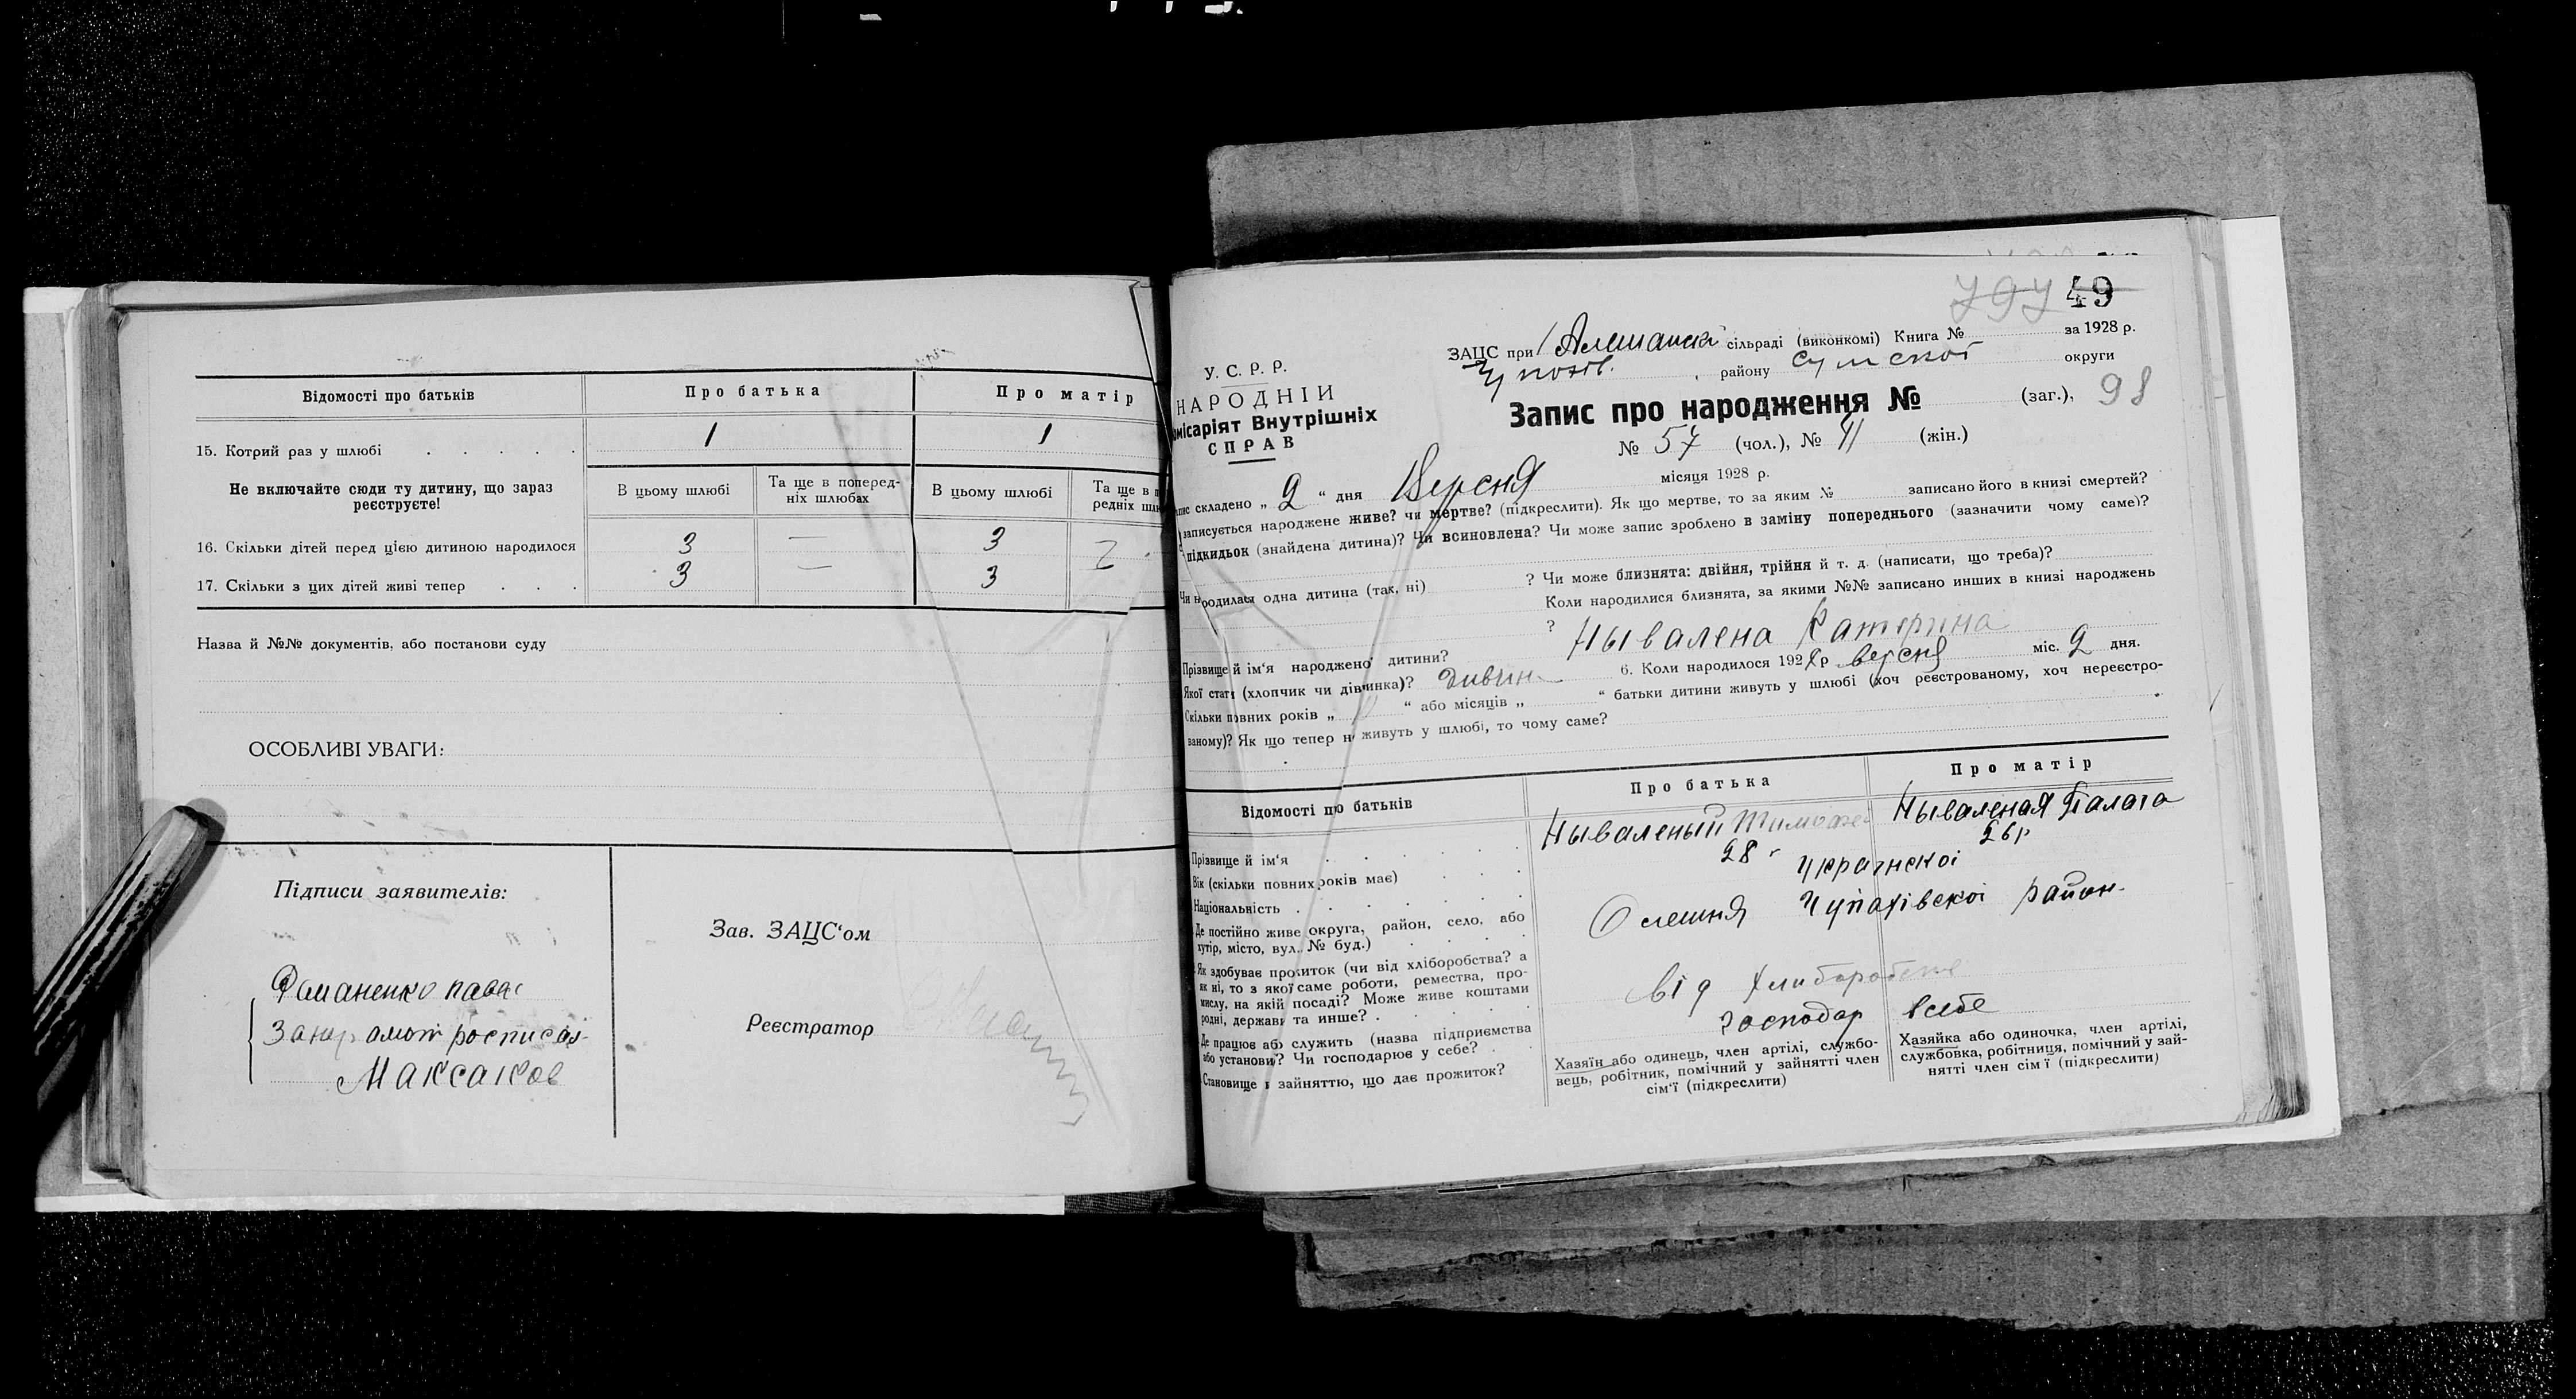 Відомості про батьків
Про батька
Про матір
15. Котрий раз у шлюбі
1
1
Не включайте сюди ту дитину, що зараз
реєструєте!
В цьому шлюбі
Та ще в поперед-
ніх шлюбах
В цьому шлюбі
Та ще в п
редніх шлю
16. Скільки дітей перед цією дитиною народилося
3
—
3
17. Скільки з цих дітей живі тепер
3
—
3
Назва й №№ документів, або постанови суду
ОСОБЛИВІ УВАГИ:
Підписи заявителів:
Зав. ЗАЦС'ом
Реєстратор
росписал-
Максаков
49
У. С. Р. Р.
НАРОДНІЙ
місаріят Внутрішніх
СПРАВ
ЗАЦС при сільраді (виконкомі) Книга № за 1928 р.
району Сумской округи
Запис про народження № (заг.), 98
№ 57 (чол.), № 41 (жін.)
пис складено „ 2 “ дня Версня місяця 1928 р.
записується народжене живе? чи мертве? (підкреслити). Як що мертве, то за яким № записано його в книзі смертей?
підкидьок (знайдена дитина)? Чи всиновлена? Чи може запис зроблено в заміну попереднього (зазначити чому саме)?
Чи народилася одна дитина (так, ні) ? Чи може близнята: двійня, трійня й т. д. (написати, що треба)?
Коли народилися близнята, за якими №№ записано инших в книзі народжень
?
Прізвище й ім'я народженої дитини? Нывалена Катерина
Якої статі (хлопчик чи дівчинка)? дивчн 6. Коли народилося 1928 р версня міс. 2 дня.
Скільки повних років „ “ або місяців „ “ батьки дитини живуть у шлюбі (хоч реєстрованому, хоч нереєстро-
ваному)? Як що тепер не живуть у шлюбі, то чому саме?
Відомості про батьків
Про батька
Про матір
Прізвище й ім'я
Нываленый
Нываленая Палага
Вік (скільки повних років має)
28
26 р
Національність
Украінскоі
Де постійно живе округа, район, село, або
хутір, місто, вул. № буд.)
Олешня Чупахівскоі район-
Як здобуває прожиток (чи від хліборобства? а
як ні, то з якої саме роботи, ремества, про-
мислу, на якій посаді? Може живе коштами
родні, держави та инше?
від
Де працює або служить (назва підприємства
або установи? Чи господарює у себе?
господар всебе
Становище в зайняттю, що дає прожиток?
Хазяїн або одинець, член артілі, службо-
вець, робітник, помічний у зайнятті член
сім'ї (підкреслити)
Хазяйка або одиночка, член артілі,
службовка, робітниця, помічний у зай-
нятті член сім'ї (підкреслити)